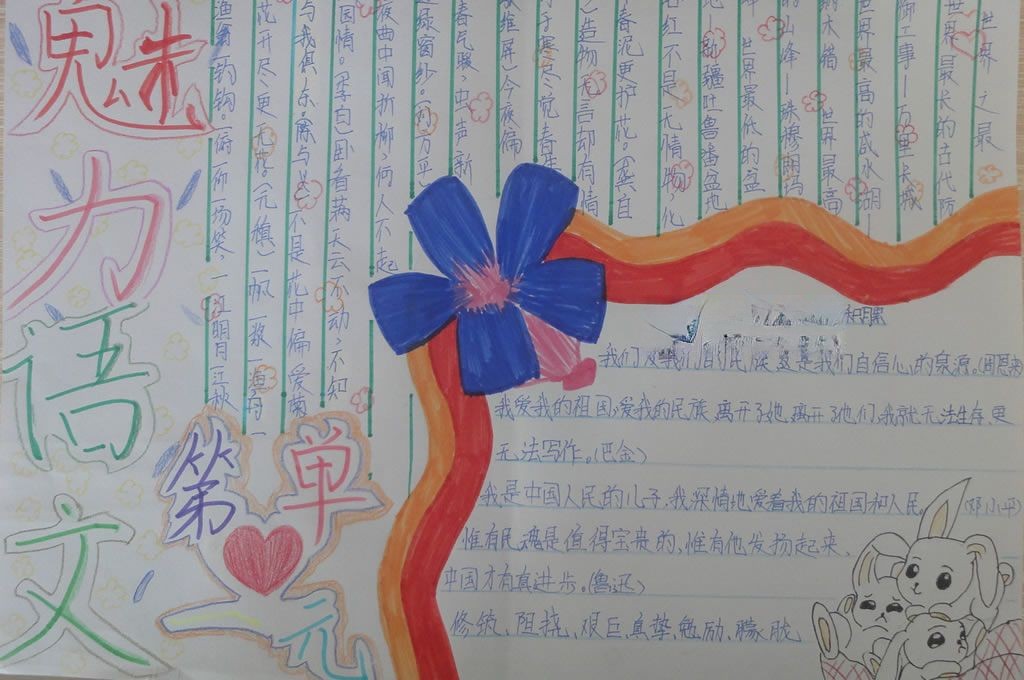 魅力语文
第一单元
世界之最
世界最长的古代防
御工事—万里长城
世界最高的咸水湖—
纳木错 世界最高
的山峰—珠穆朗玛
世界最低的盆
地—新疆吐鲁番盆地
红不是无情物,化
春泥更护花。(龚自
造物无言却有情
于寒尽觉春生
维屏)今夜偏
春气暖,虫声新
透绿窗纱。(刘方平
夜曲中闻折柳,何人不起
园情。(李白)卧看满天云不动,不知
与我俱东。(陈与义)不是花中偏爱菊
花开尽更无花(元稹)一帆一桨一渔舟,一
渔翁一钓钩。一俯一仰一场笑,一江明月一江秋
积累
我们爱我们的民族,这是我们自信心的泉源。(周恩来)
我爱我的祖国,爱我的民族,离开了她,离开了他们,我就无法生存,更
无法写作。(巴金)
我是中国人民的儿子,我深情地爱着我的祖国和人民。(邓小平)
惟有民魂是值得宝贵的,惟有他发扬起来,
中国才有真进步。(鲁迅)
修筑、阻挠、艰巨、真挚、勉励、朦胧